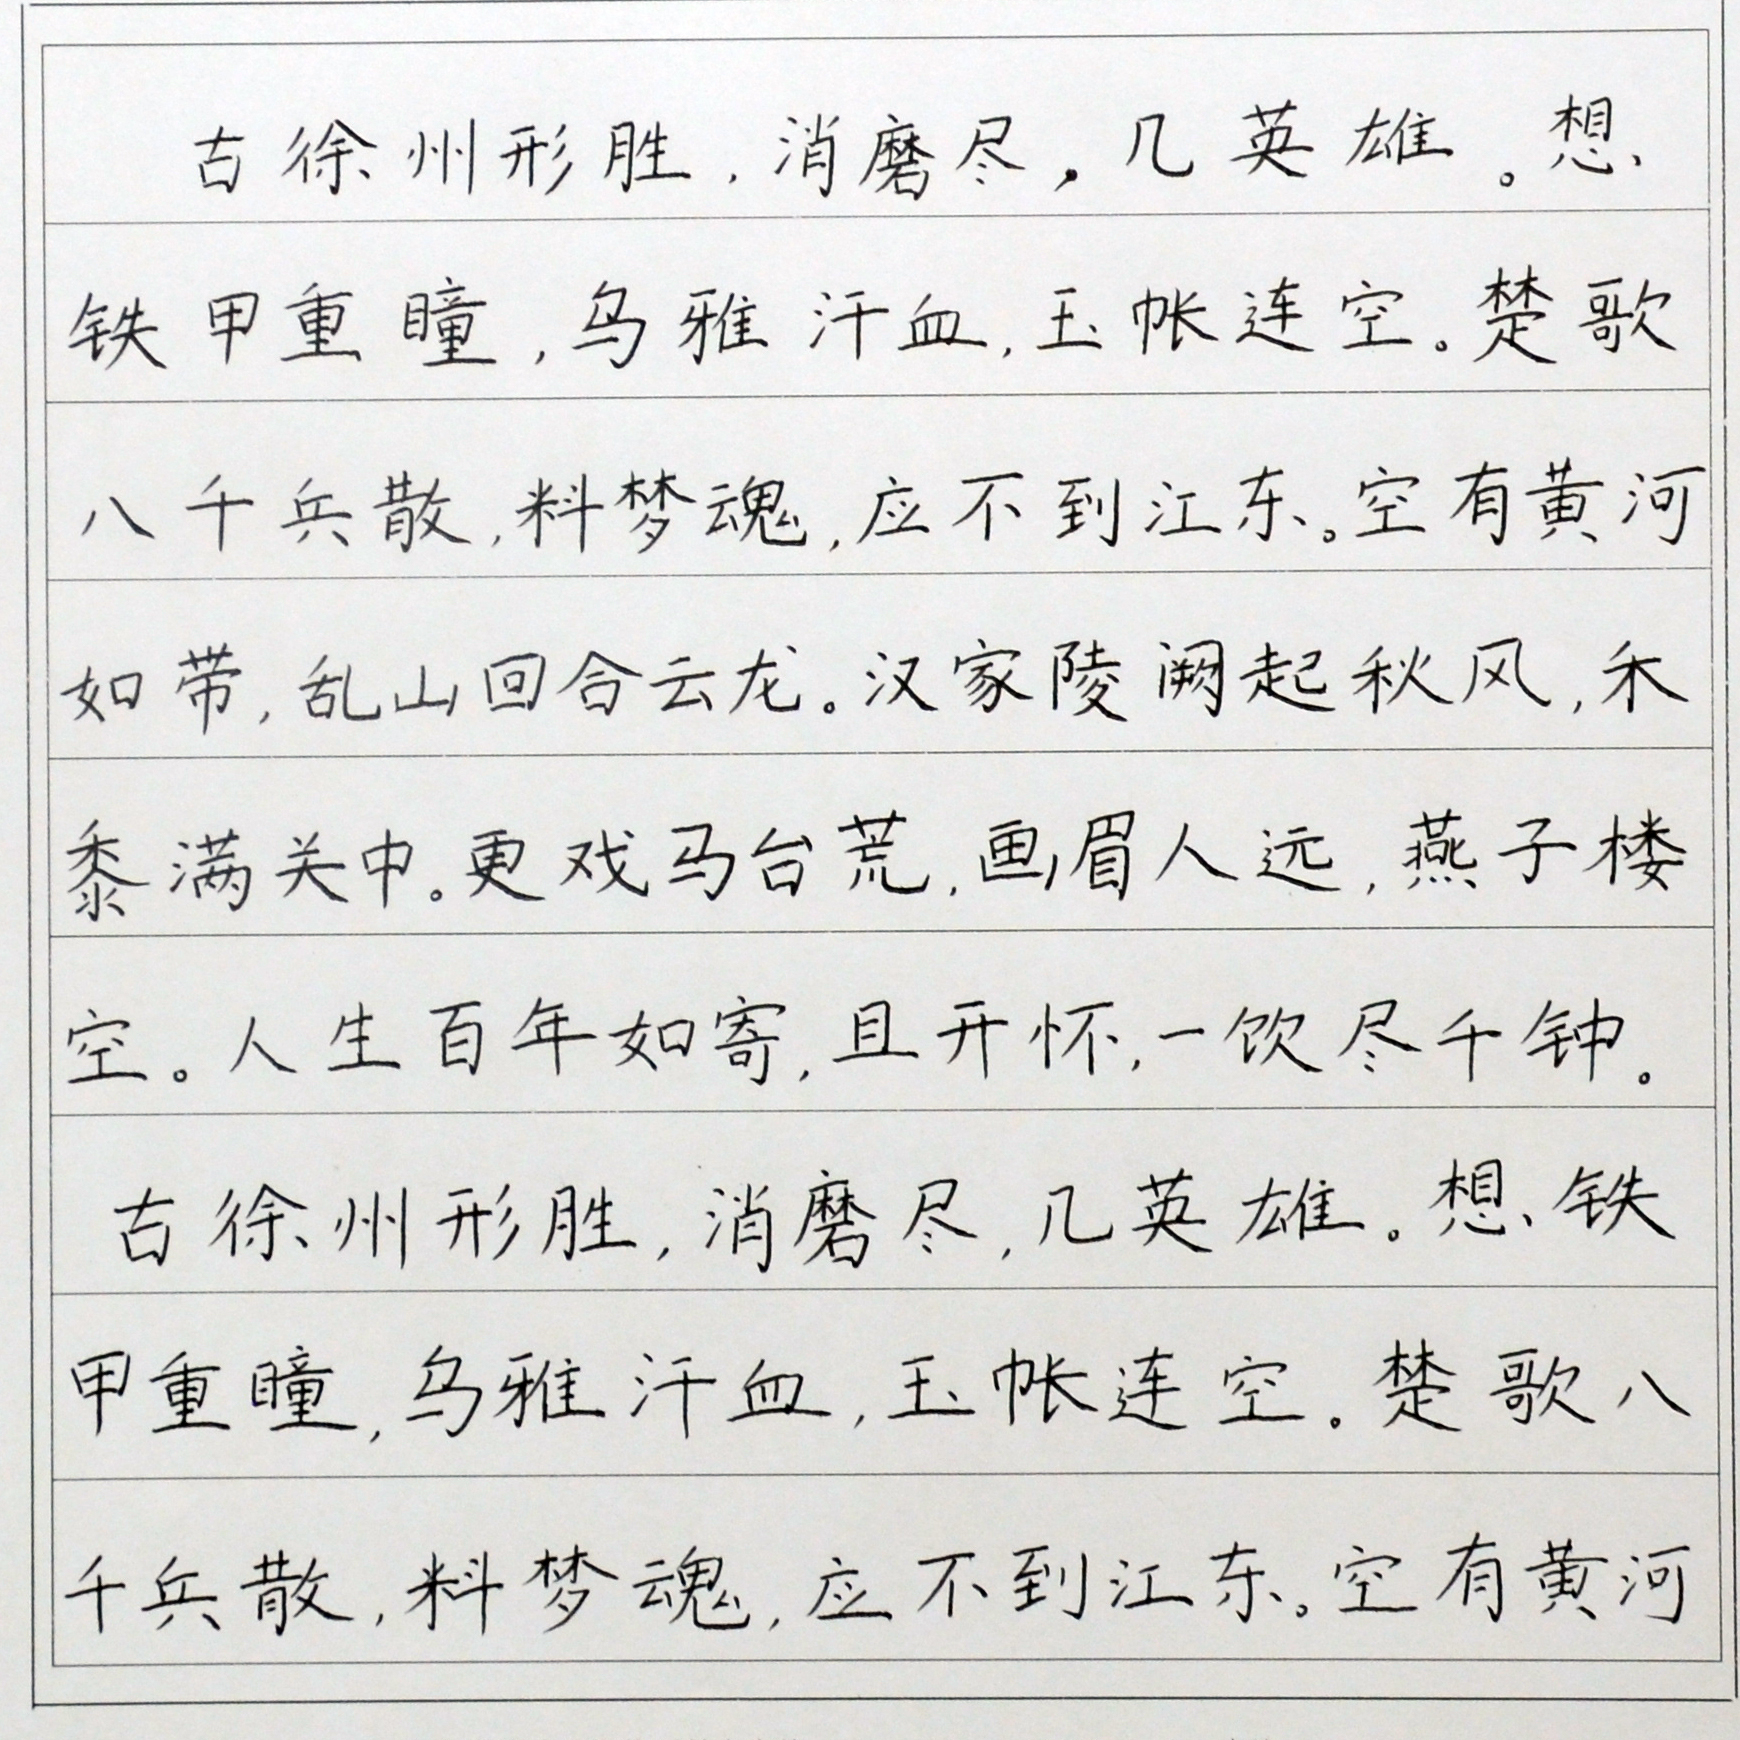 古徐州形胜，消磨尽，几英雄。想
铁甲重瞳，乌雅汗血，玉帐连空。楚歌
八千兵散，料梦魂，应不到江东。空有黄河
如带，乱山回合云龙。汉家陵阙起秋风，禾
黍满关中。更戏马台荒，画眉人远，燕子楼
空。人生百年如寄，且开怀，一饮尽千钟。
古徐州形胜，消磨尽，几英雄。想铁
甲重瞳，乌雅汗血，玉帐连空。楚歌八
千兵散，料梦魂，应不到江东。空有黄河